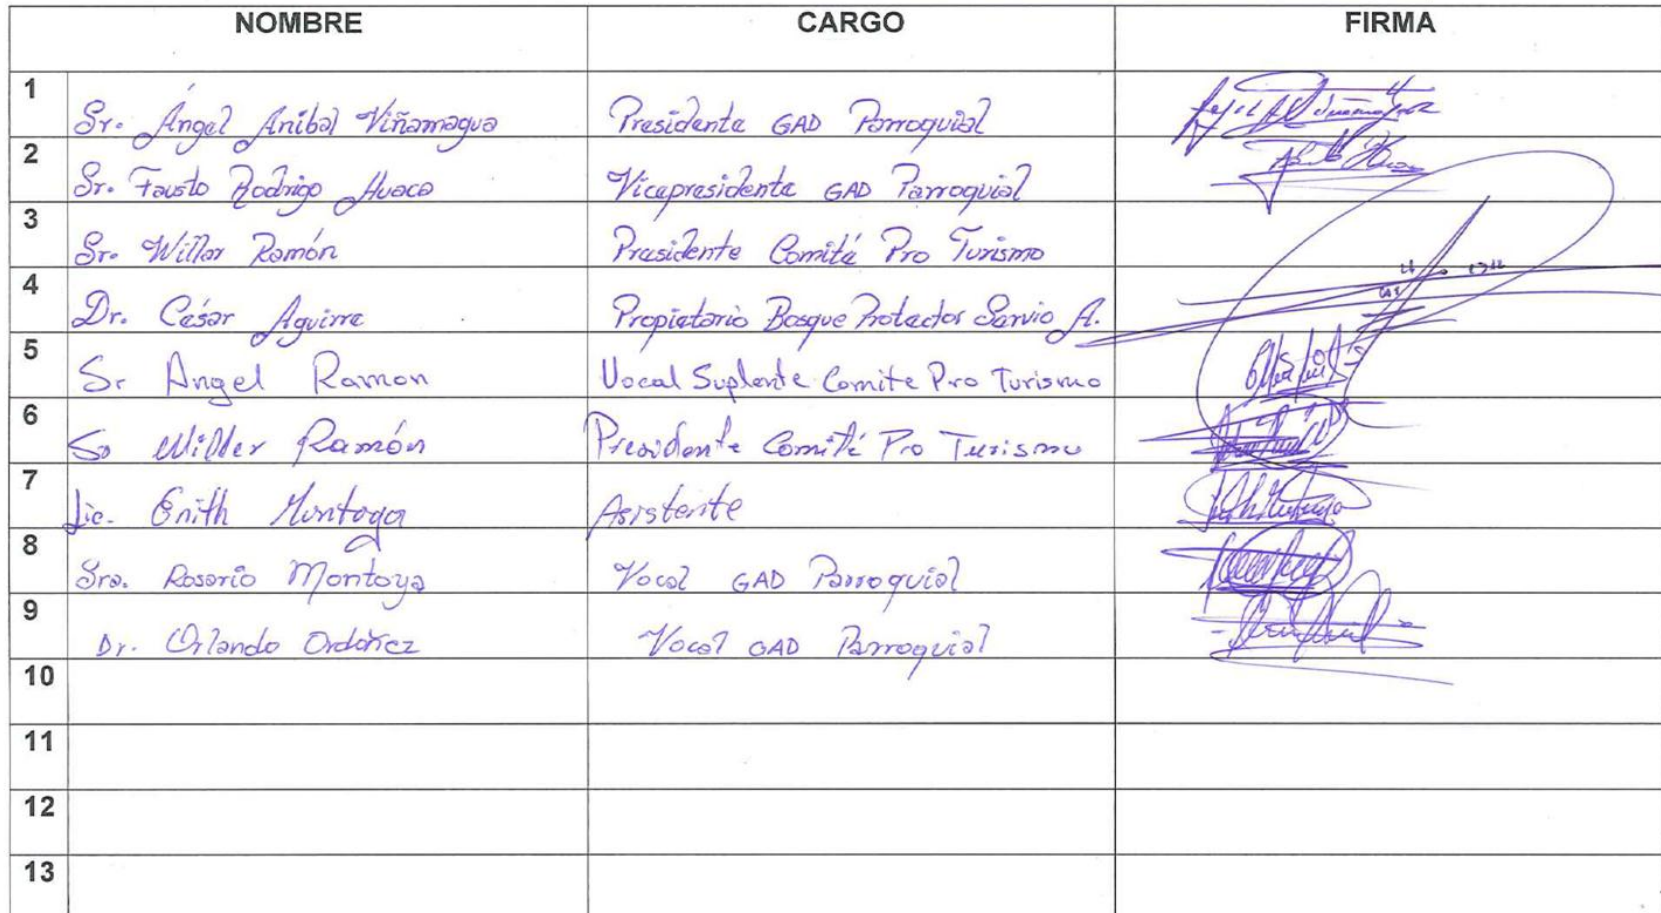 NOMBRE CARGO FIRMA
1 Sr. Ángel Anibal Viñamagua Presidente GAD Parroquial
2 Sr. Fausto Rodrigo Huaca Vicepresidente GAD Parroquial
3 Sr. Willar Ramón Presidente Comité Pro Turismo
4 Dr. César Aguirre Propietario Bosque Protector Sarvio A.
5 Sr Angel Ramon Vocal Suplente Comite Pro Turismo
6 Sr Wilder Ramón Presidente Comité Pro Turismo
7 Lic. Enith Montoya Asistente
8 Sra. Rosario Montoya Vocal GAD Parroquial
9 Dr. Orlando Ordóñez Vocal GAD Parroquial
10
11
12
13